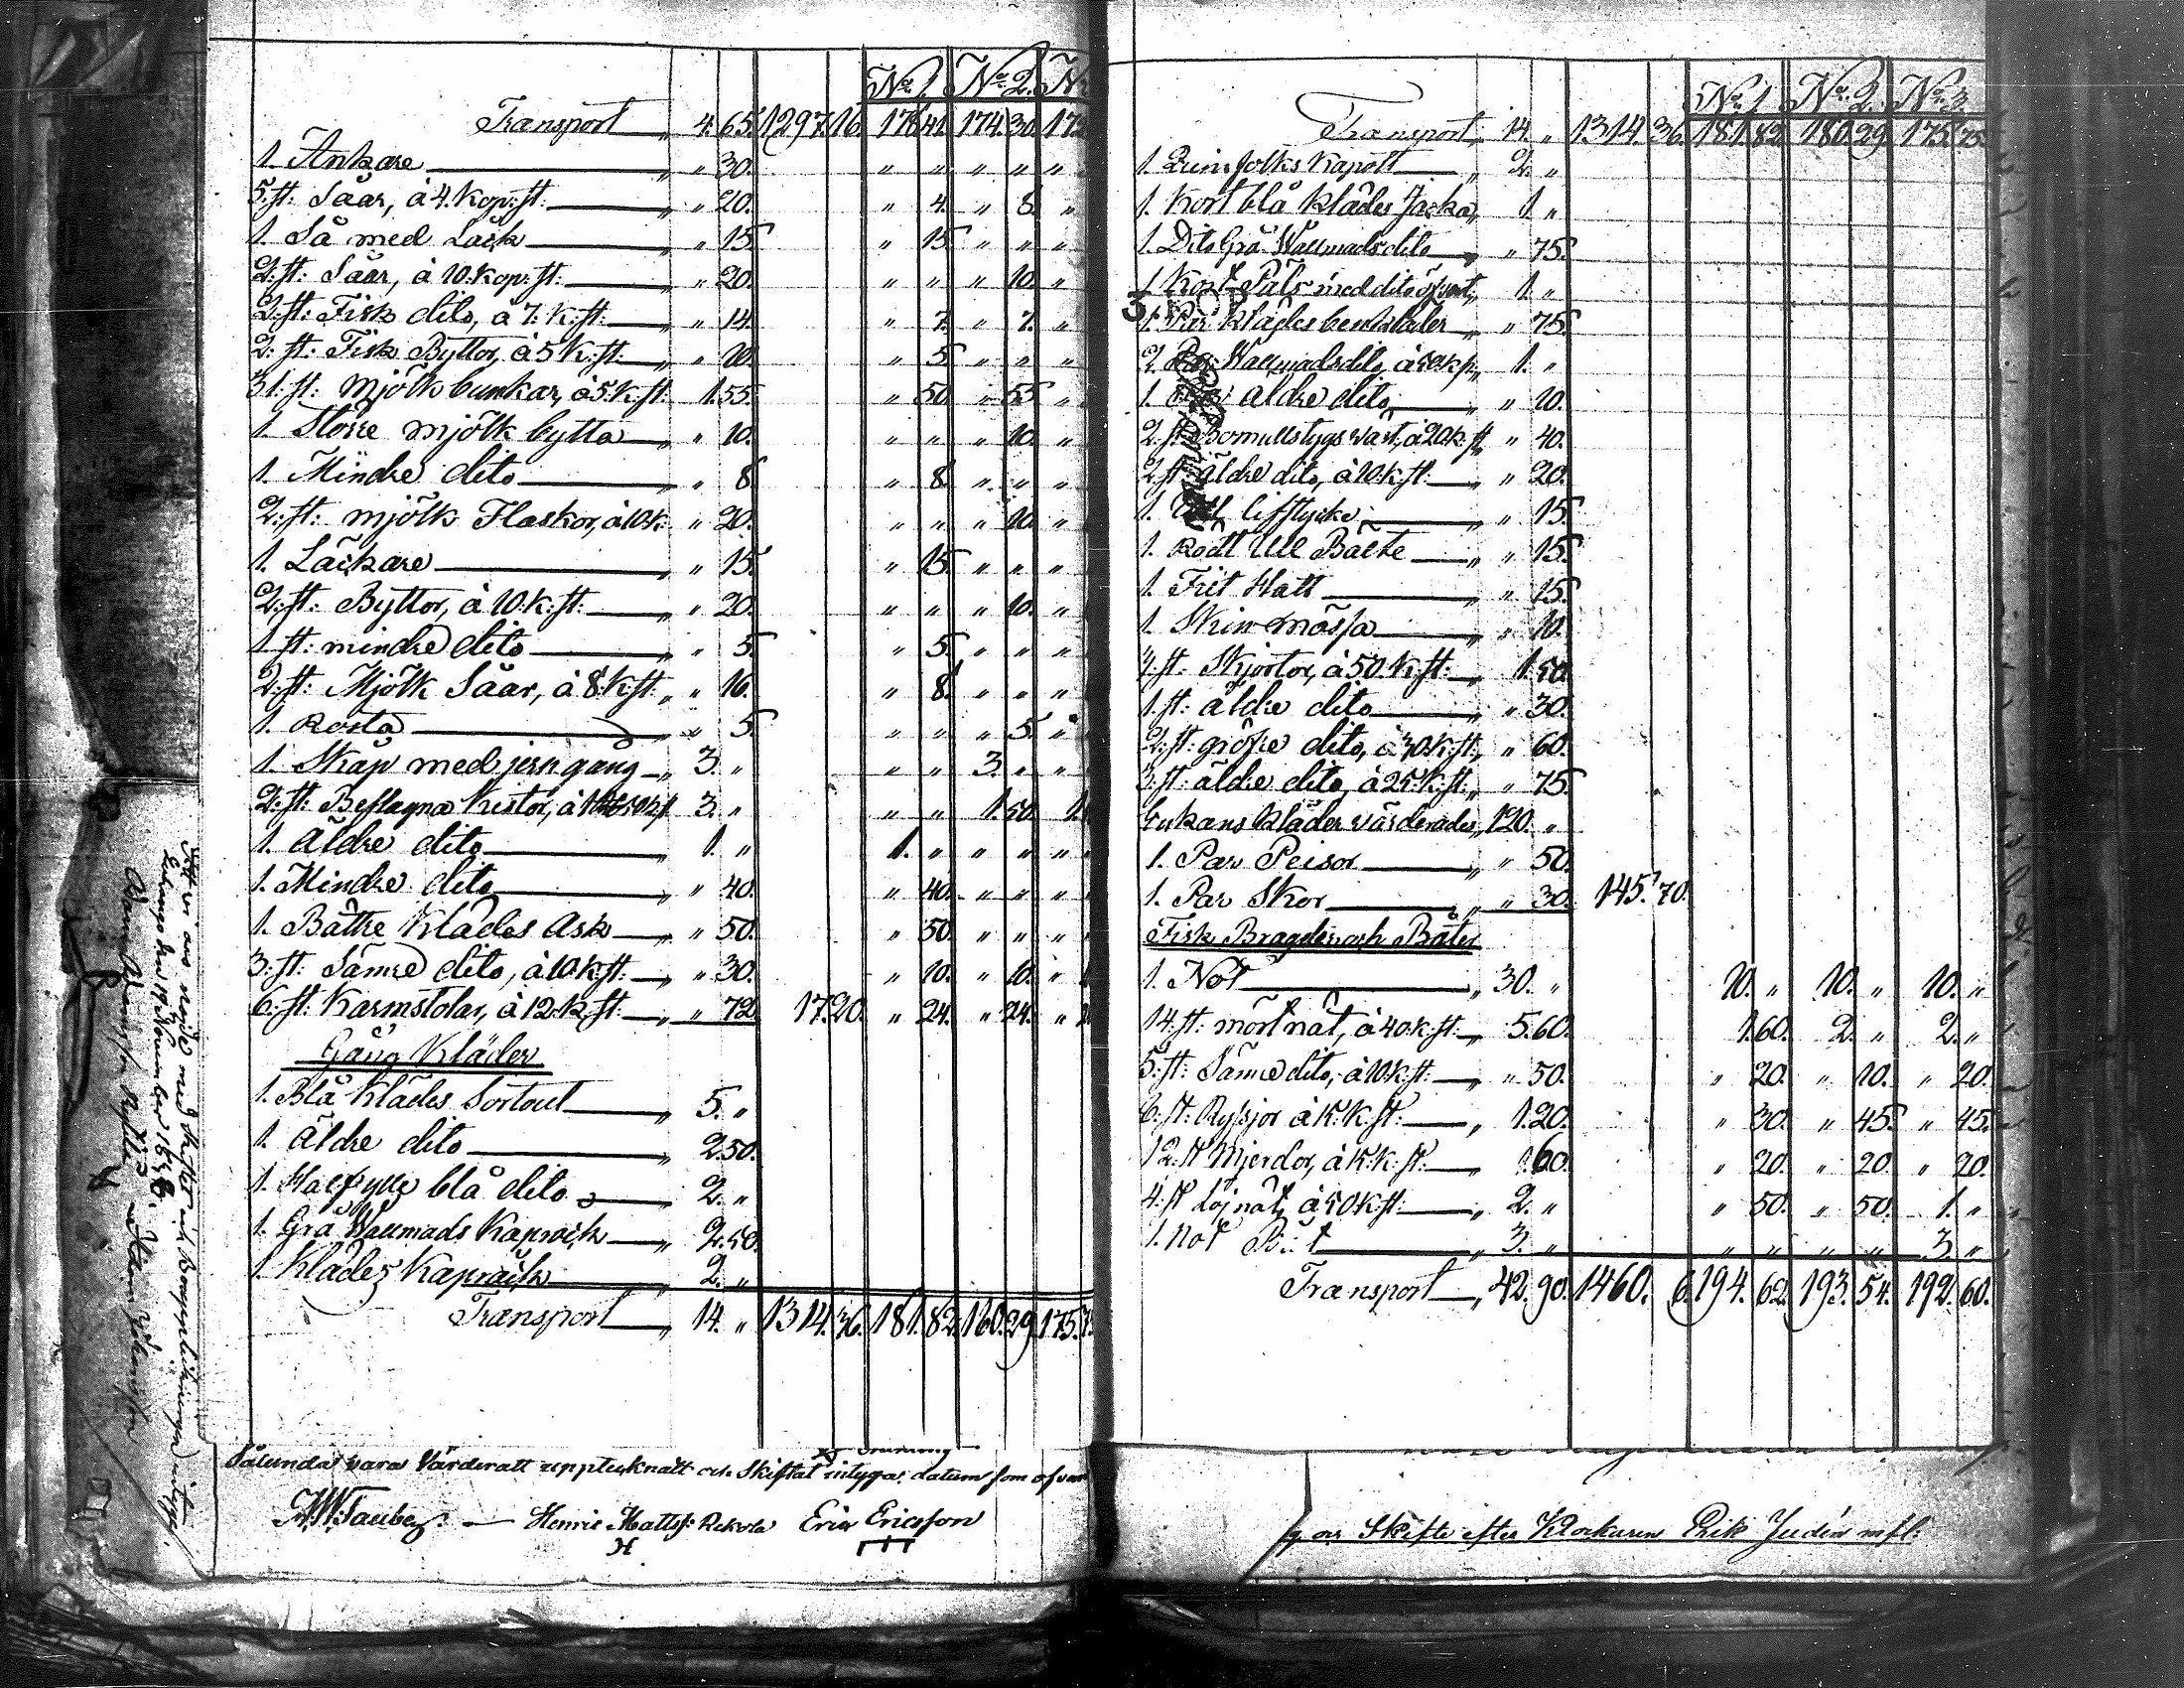 No 1. No 2. No
Transport „ 4. 65. 1297. 16. 178. 41. 174. 30. 172
1. Ankare „ „ 30. „ „ „ „ „
5. st: Såar, à 4. Kop: st: „ „ 20. „ 4. „ 8. „
1. Så med Låck „ „ 15. „ 15. „ „ „
2. st: Såar, à 10. Kop: st: „ „ 20. „ „ „ 10. „
2. st: Fisk dito, à 7. K: st: „ „ 14. „ 7. „ 7. „
2. st: Fisk Byttor, à 5 K: st: „ „ 10. „ 5. „ „ „
31. st: Mjölk bunkar, à 5. K: st: 1. 55. „ 50. „ 55. „
1. Större mjölk bytta „ „ 10. „ „ „ 10. „
1. Mindre dito „ 8. „ 8. „ „ „
2. st: mjölk Flaskor, à 10 K: „ 20. „ „ „ 10. „
1. Läckare „ „ 15. „ 15. „ „ „
2. st: Byttor, à 10. K: st: „ „ 20. „ „ „ 10. „
1 st: mindre dito „ 5. „ 5. „ „ „
2. st: Mjölk Såar, à 8. K: st: „ „ 16. „ 8. „ „ „
1. Rosta „ „ 5. „ „ „ 5. „
1. Skåp med jerngång „ 3. „ „ „ 3. „ „
2. st: Beslagna Kistor, à 3. „ „ „ 1. 50. 1.
1. Äldre dito „ 1. „ 1. „ „ „ „
1. Mindre dito „ „ 40. „ 40. „ „ „
1. Bättre Klädes Ask „ „ 50. „ 50. „ „ „
3. st: Sämre dito, à 10. K: st: „ „ 30. „ 10. „ 10. „
6. st: Karmstolar, à 12. K. st: „ „ 72. 17. 20. „ 24. „ 24. „
Gång Kläder
1. Blå Klädes Sortout „ 5. „
1. Äldre dito „ 2. 50.
1. Halfylle blå dito „ 2. „
1. Grå Wallmads Kaprock „ 2. 50.
1. Klädes Kaprock „ 2. „
Transport „ 14. „ 1314. 36. 181. 82. 180. 29. 175.
Sålunda vara Värderatt upptecknatt och Skiftat intygar datum som ofvan
Henric Mattss: Rekola Eric Ericsson
No 1. No 2. No 3.
Transport „ 14. „ 1314. 36. 181. 82. 180. 29. 175. 75.
1. Quinfolks Kapott „ 2. „
1. Kort blå Klädes Jacka „ 1. „
1. Dito Grå Wallmads dito „ „ 75.
1. Kort Päls med dito öfvert „ 1. „
1. Par Klädes benkläder „ „ 75.
2. Par Wallmads dito, à 50 K p: „ 1. „
1. äldre dito „ „ 20.
2. st Bomullstygs väst, à 20 K. st „ 40.
2. st: äldre dito, à 10. K. st: „ „ 20.
1. lifstycke „ „ 15.
1. Rödt Ull Bälte „ „ 15.
1. Filt Hatt „ „ 15.
1. Skin mössa „ „ 10.
st: Skjortor, à 50. K. st: „ 1. 50.
1. st: äldre dito „ „ 30.
2. st: gröfre dito, à 30. K: st: „ „ 60.
3. st: äldre dito, à 25. K: st: „ „ 75.
Enkans Kläder värderades „ 120. „
1. Par Peisor „ „ 50.
1. Par Skor „ „ 30. 145. 70.
Fisk Bragder och Båter
1. Not „ 30. „ 10. „ 10. „ 10. „
14. st: mört nät, à 40. K. st: „ 5. 60. 1. 60. 2. „ 2. „
5. st: Sämre dito, à 10. K. st: „ „ 50. „ 20. „ 10. „ 20.
st: Ryssjor à 15. K. st: „ 1. 20. „ 30. „ 45. „ 45.
12. st Mjerdor, à 5. K. st: „ 60. „ 20. „ 20. „ 20.
4. st Löjnät, à 50 K. st: „ 2. „ „ 50. „ 50. 1. „
1. Not Båt „ 3. „ „ „ „ „ 3. „
Transport „ 42. 90. 1460. 6. 194. 62. 193. 54. 192. 60.
Skifte efter Klockaren Erik Judén mfl: